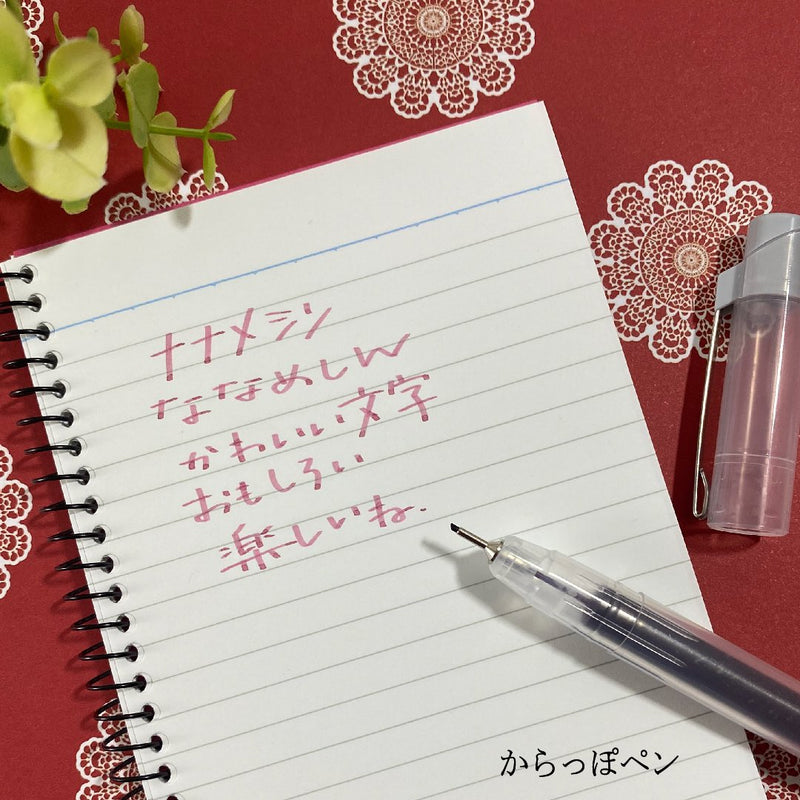 ナナメシン
ななめしん
かわいい文字
おもしろい
楽しいね.
からっぽペン